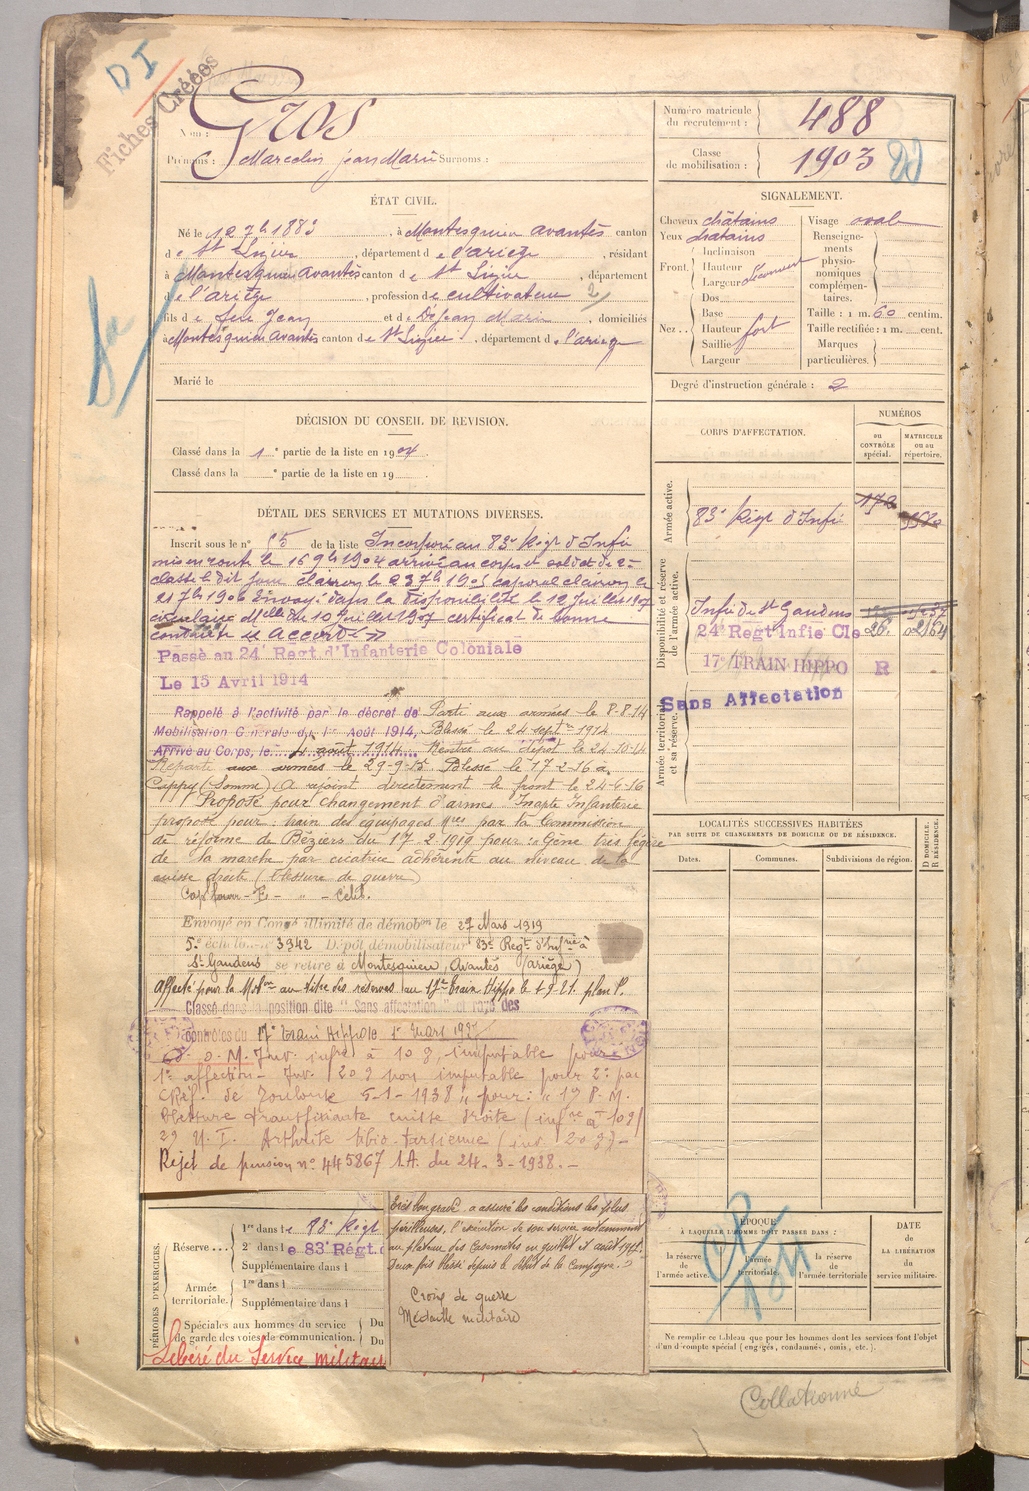 DI
Fiches Créées
Nom : Gros
Prénoms : Marcelin Jean Marie Surnoms :
Numéro matricule du recrutement : 488
Classe de mobilisation : 1903
ÉTAT CIVIL.
Né le 12 7b 1883, à Montesquieu avantès canton
de St Lizier, département de l'ariège, résidant
à Montesquieu avantès canton de St Lizier, département
de l'ariège, profession de cultivateur 2/
fils de feu Jean et de Dejean Marie, domiciliés
à Montesquieu avantès canton de St Lizier, département de l'ariège
Marié le
SIGNALEMENT.
Cheveux châtains
Yeux châtains
Front. Inclinaison
Hauteur
Largeur découvert
Nez .. Dos
Base
Hauteur fort
Saillie
Largeur
Visage oval
Renseignements physionomiques complémentaires.
Taille : 1 m. 60 centim.
Taille rectifiée : 1 m. cent.
Marques particulières.
Degré d'instruction générale : 2
DÉCISION DU CONSEIL DE REVISION.
Classé dans la 1e partie de la liste en 1904
Classé dans la e partie de la liste en 19
CORPS D'AFFECTATION.
NUMÉROS
AU CONTRÔLE spécial.
MATRICULE ou au répertoire.
Armée active.
83e Régt d'Infie
Disponibilité et réserve de l'armée active.
Infie de St Gaudens
24e Regt Infie Cle 26. 02164
17e TRAIN HIPPO R
Sans Affectation
Armée territoriale et sa réserve.
DÉTAIL DES SERVICES ET MUTATIONS DIVERSES.
Inscrit sous le n° 55 de la liste Incorporé au 83e Régt d'Infie
mis en route le 16 9b 1904 arrivé au corps et soldat de 2e
classe le dit jour clairon le 23 7b 1905 caporal clairon le
21 7b 1906 Envoyé dans la disponibilité le 12 Juillet 1907
circulaire Mlle du 10 Juillet 1907 certificat de bonne
conduite « Accordé »
Passé au 24e Regt d'Infanterie Coloniale
Le 15 Avril 1914
Rappelé à l'activité par le décret de Parti aux armées le 8-8-14
Mobilisation Générale du 1er Août 1914, Blessé le 24 septre 1914
Arrivé au Corps, le 4 août 1914. Rentré au dépôt le 24-10-14
Reparti aux armées le 29-9-15 Blessé le 17-2-16 à
Cappy (Somme) A rejoint directement le front le 24-4-16
Proposé pour changement d'armes Inapte Infanterie
proposé pour : train des équipages mres par la Commission
de réforme de Béziers du 17-2-1919 pour : « Gêne très légère
de la marche par cicatrice adhérente au niveau de la
cuisse droite (blessure de guerre)
Célib.
Envoyé en Congé illimité de démobon le 27 Mars 1919
5e échelon n° 3942 Dépôt démobilisateur 83e Regt d'Infrie à
St Gaudens se retire à Montesquieu Avantès (Ariège)
Affecté pour la Mobon au titre des réserves au 17e Train Hippo le 1-9-21. plan P.
Classé dans la position dite "Sans affectation" et rayé des
contrôles du 17e Train Hippole 1er Mars 1937
D. M. Inv. infre à 10 %, imputable pour
1e affection - Inv. 20 % non imputable pour 2e par
C Réf. de Toulouse 5-1-1938 « pour : « 1°) P.M.
Blessure transfixiante cuisse droite (infre à 10 %)
2°) N.I. Arthrite tibio-tarsienne (inv. 20 %) -
Rejet de pension n° 445867 I.A. du 24-3-1938. -
LOCALITÉS SUCCESSIVES HABITÉES
PAR SUITE DE CHANGEMENTS DE DOMICILE OU DE RÉSIDENCE.
Dates.
Communes.
Subdivisions de région.
D DOMICILE. R RÉSIDENCE.
PÉRIODES D'EXERCICES.
Réserve ... 1re dans le 83e Régt
2e dans le 83e Régt. d
Supplémentaire dans l
Armée territoriale. 1re dans l
Supplémentaire dans l
Spéciales aux hommes du service de garde des voies de communication. Du
Du
Libéré du Service militair
Très bon gradé, a assuré les conditions les plus
périlleuses, l'exécution de son service notamment
au plateau des Casemates en juillet et août 1917.
Deux fois blessé depuis le début de la Campagne. »
Croix de guerre
Médaille militaire
ÉPOQUE
À LAQUELLE L'HOMME DOIT PASSER DANS :
la réserve de l'armée active.
l'armée territoriale.
la réserve de l'armée territoriale
DATE DE LA LIBÉRATION du service militaire.
Ne remplir ce tableau que pour les hommes dont les services font l'objet
d'un décompte spécial (engagés, condamnés, omis, etc.).
Collationné